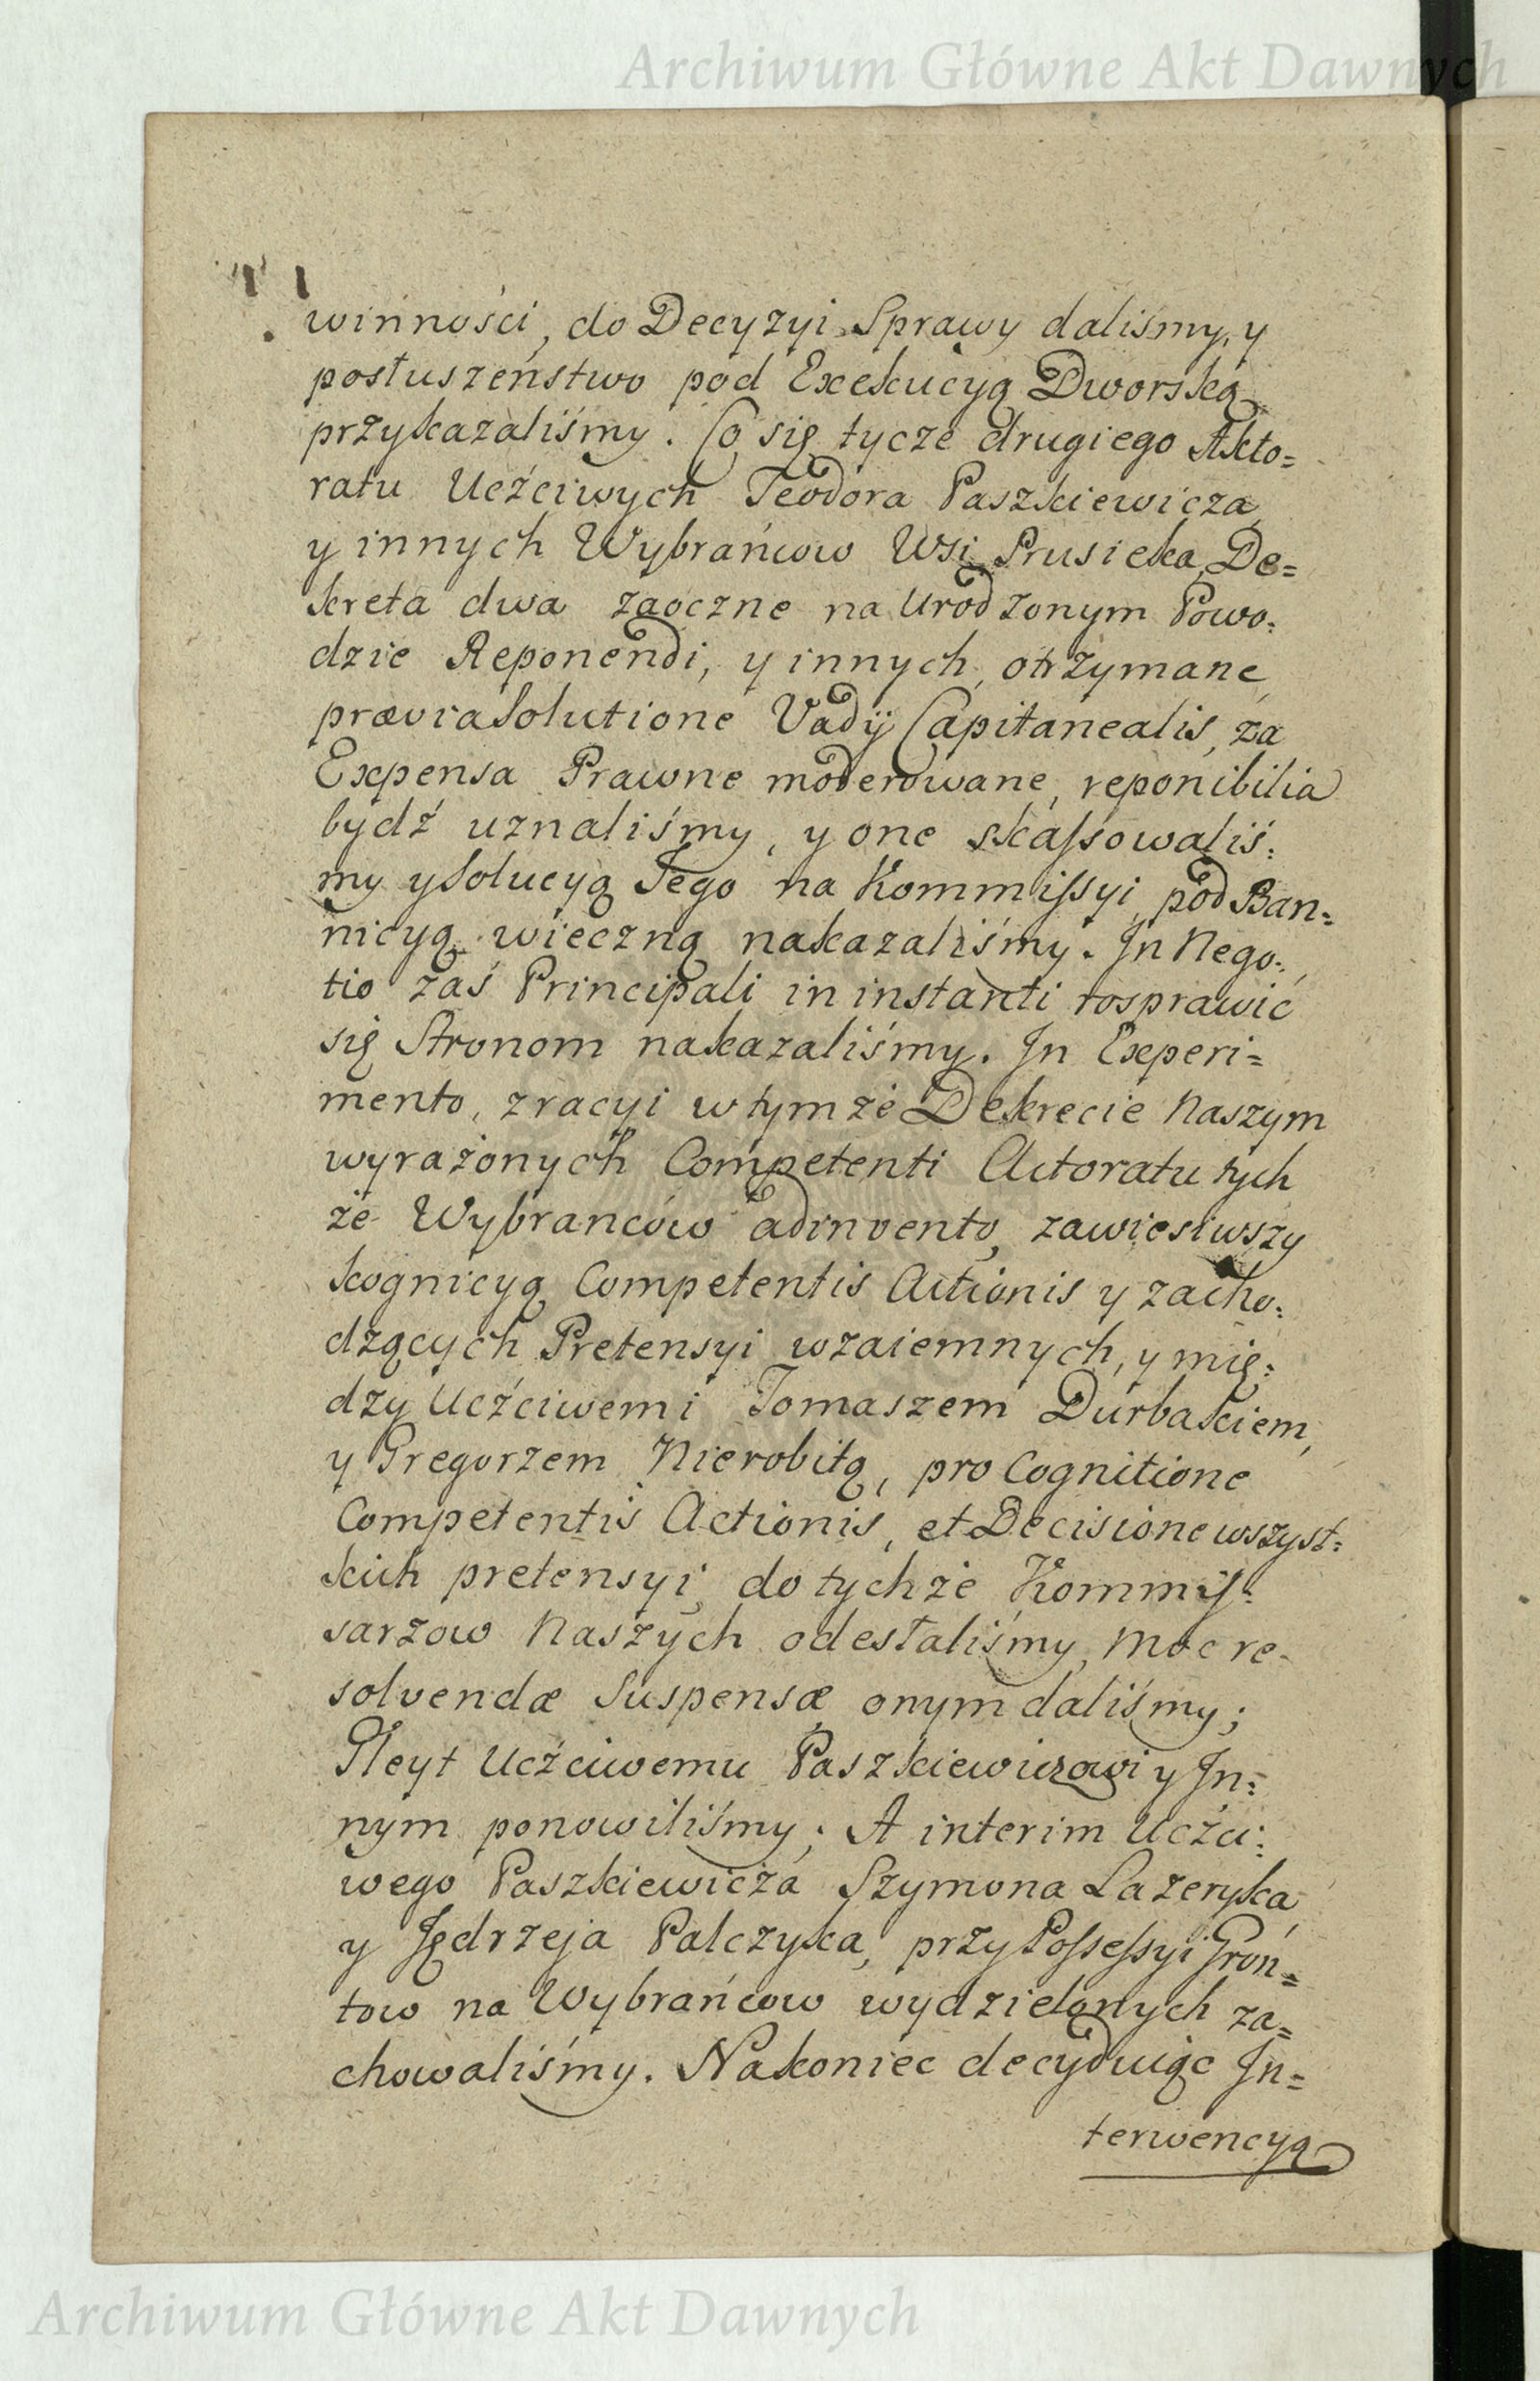 Archiwum Główne Akt Dawnych
winności, do Decyzyi Sprawy daliśmy, y
posłuszeństwo pod Exekucyą Dworską
przykazaliśmy. Co się tycze drugiego Akto=
ratu Uczciwych Teodora Paszkiewicza
y innych Wybrańcow Wsi Prusieka, De=
kreta dwa zaoczne na Urodzonym Powo=
dzie Reponendi, y innych, otrzymane
prævia Solutione Vadij Capitanealis, za
Expensa Prawne moderowane, reponibilia
bydź uznaliśmy, y one skassowaliś=
my y Solucyą Jego na Kommissyi pod Ban=
nicyą wieczną nakazaliśmy. In Nego=
tio zaś Principali in instanti rosprawić
się Stronom nakazaliśmy. In Experi=
mento, z racyi w tymże Dekrecie Naszym
wyrażonych Competenti Actoratu tych
że Wybrańców adinvento, zawiesiwszy
kognicyą Competentis Actionis y zacho=
dzących Pretensyi wzaiemnych, y mię=
dzy Uczciwemi Tomaszem Durbakiem,
y Gregorzem Nierobitą, pro Cognitione
Competentis Actionis, et Decisione wszyst=
kich pretensyi, do tychże Kommis=
sarzow Naszych odesłaliśmy, Moc re=
solvendæ Suspensæ onym daliśmy;
Gleyt Uczciwemu Paszkiewiczowi y In=
nym ponowiliśmy; A interim Uczci=
wego Paszkiewicza Szymona Lazeryka
y Jędrzeja Palczyka, przy Possessyi Gron=
tow na Wybrańcow wydzielonych za=
chowaliśmy. Nakoniec decyduiąc In=
terwencyą
Archiwum Główne Akt Dawnych